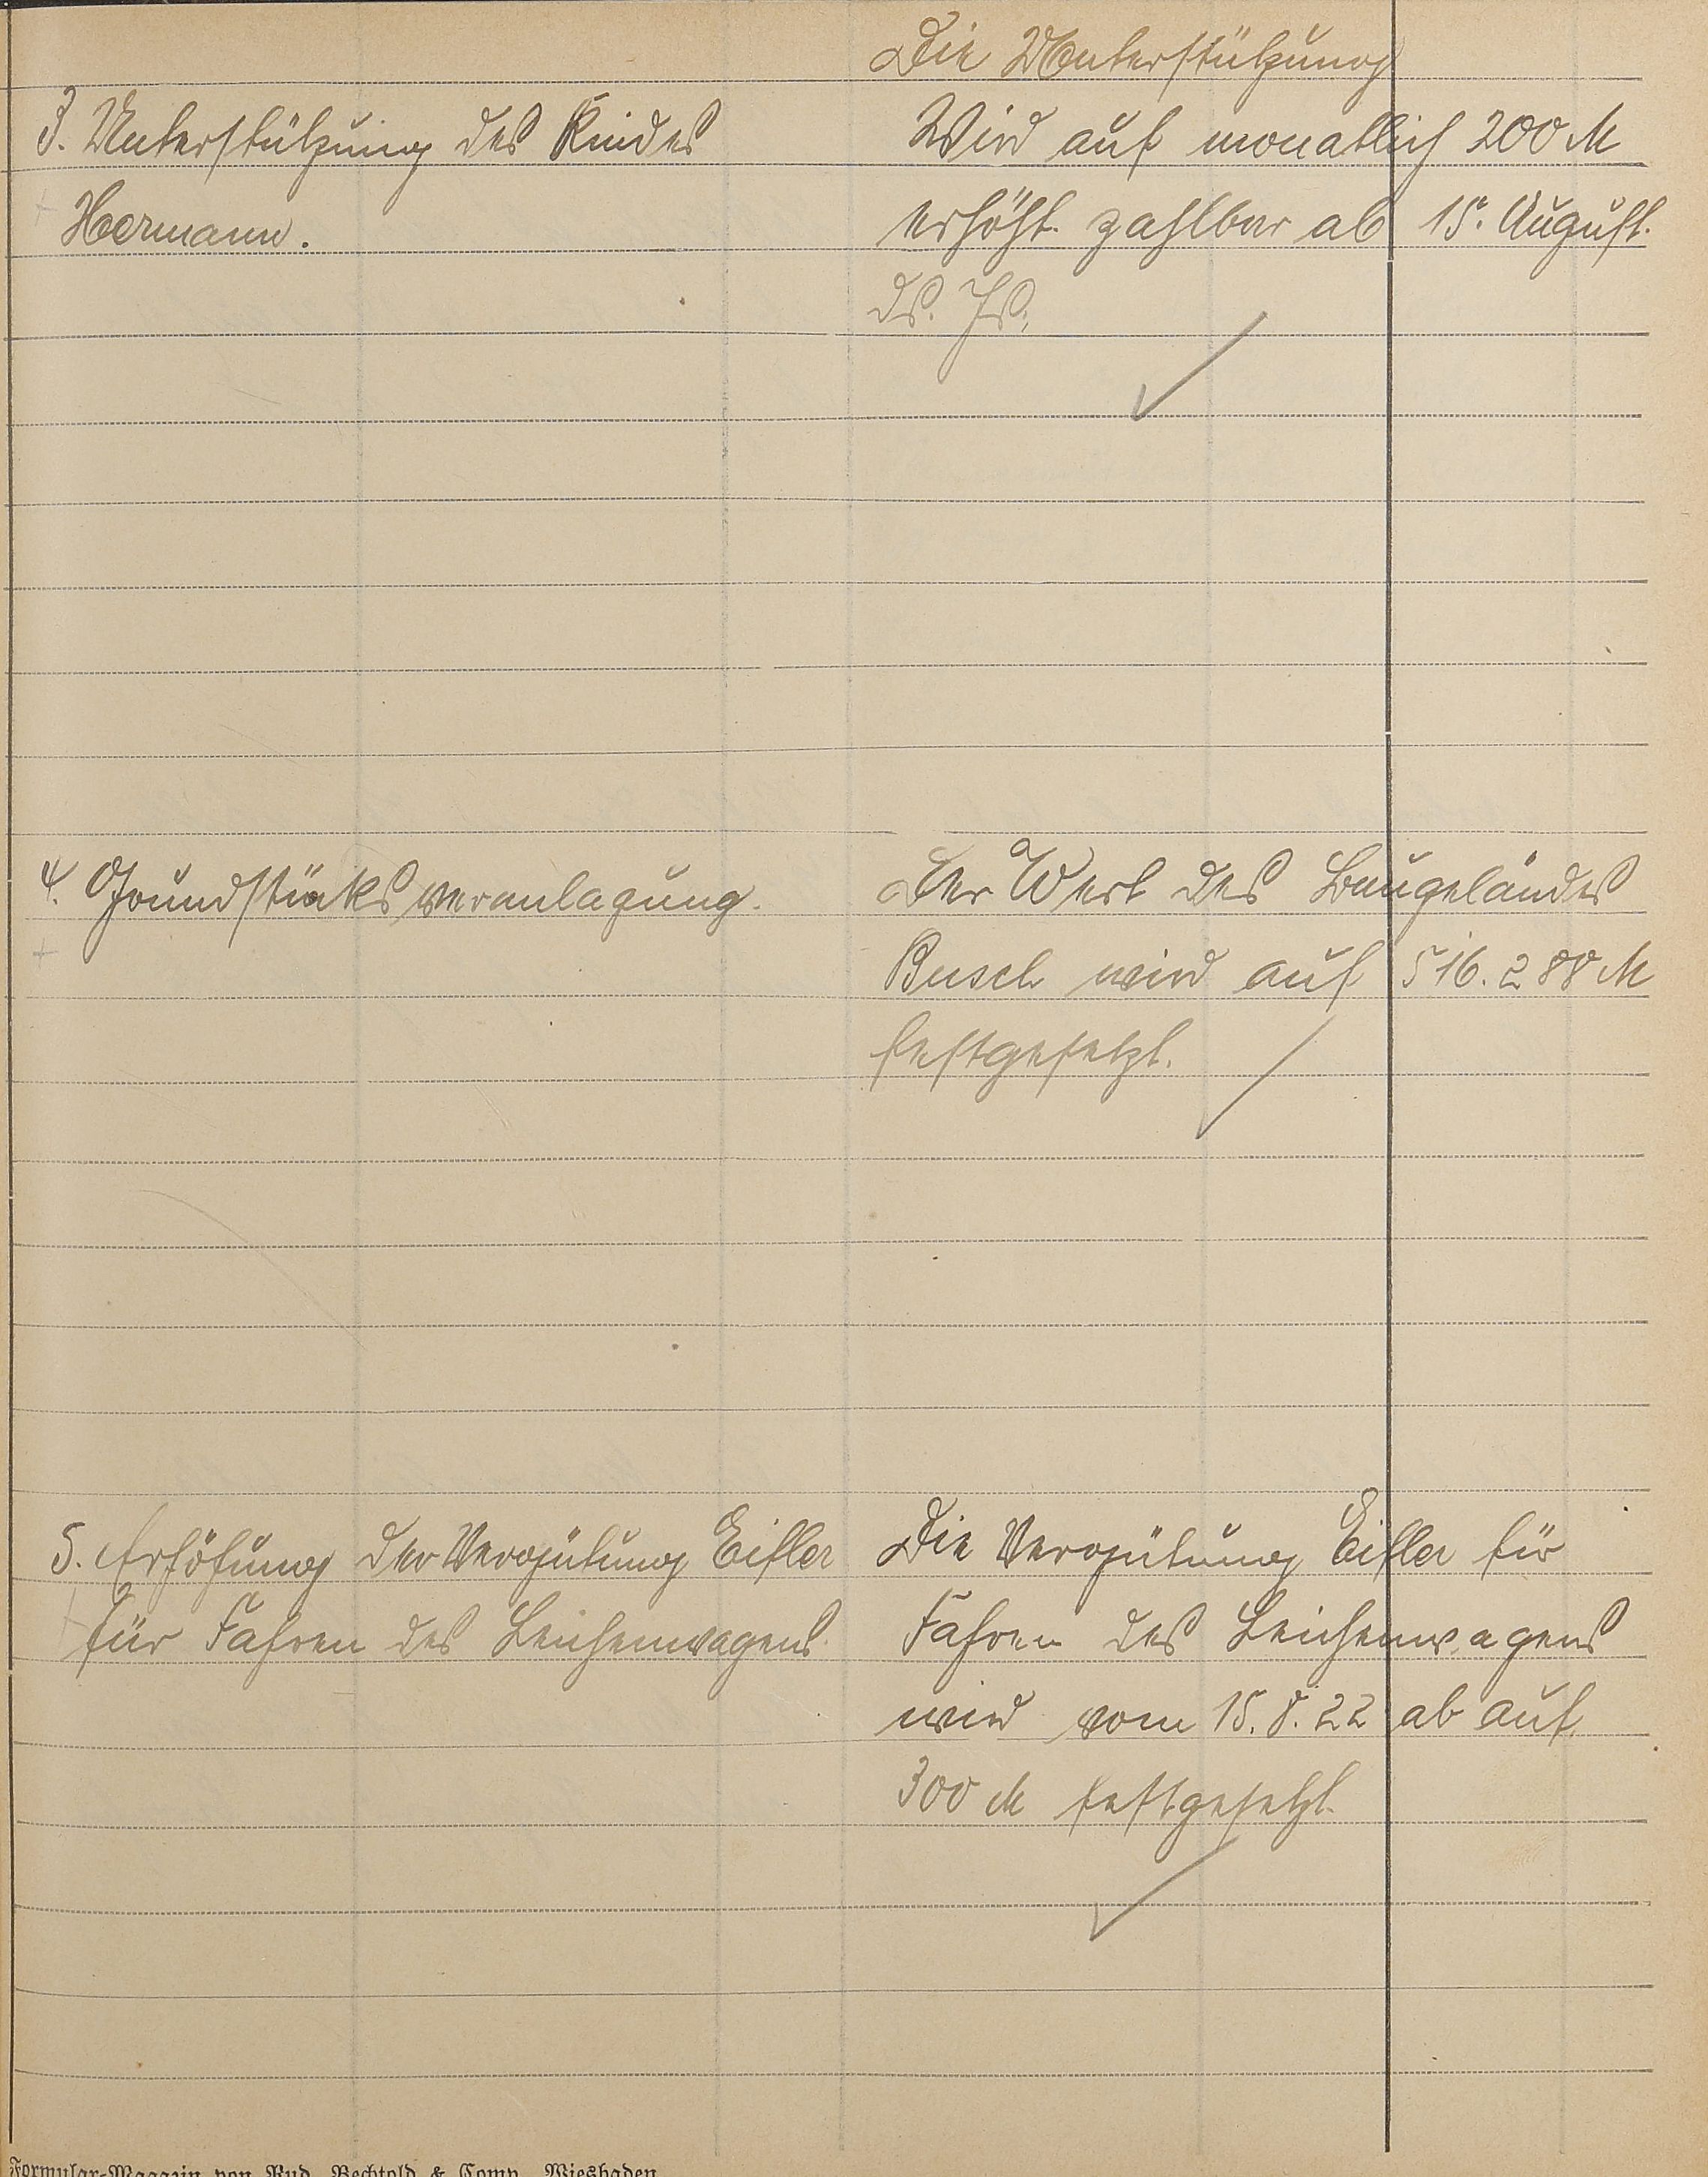 Die Unterstützung
3. Unterstützung des Kindes
Hermann.
Wird auf monatlich 200 M
erhöht. zahlbar ab 15. August.
ds. Js.
4. Grundstücksveranlagung.
Der Wert des Baugeländes
Busch wird auf 516.288 M
festgesetzt.
5. Erhöhung der Vergütung Eifler
für Fahren des Leichenwagens.
Die Vergütung Eifler für
Fahren des Leichenwagens
wird vom 15.8.22 ab auf
300 M festgesetzt.
Formular-Magazin von Rud. Bechtold & Comp. Wiesbaden